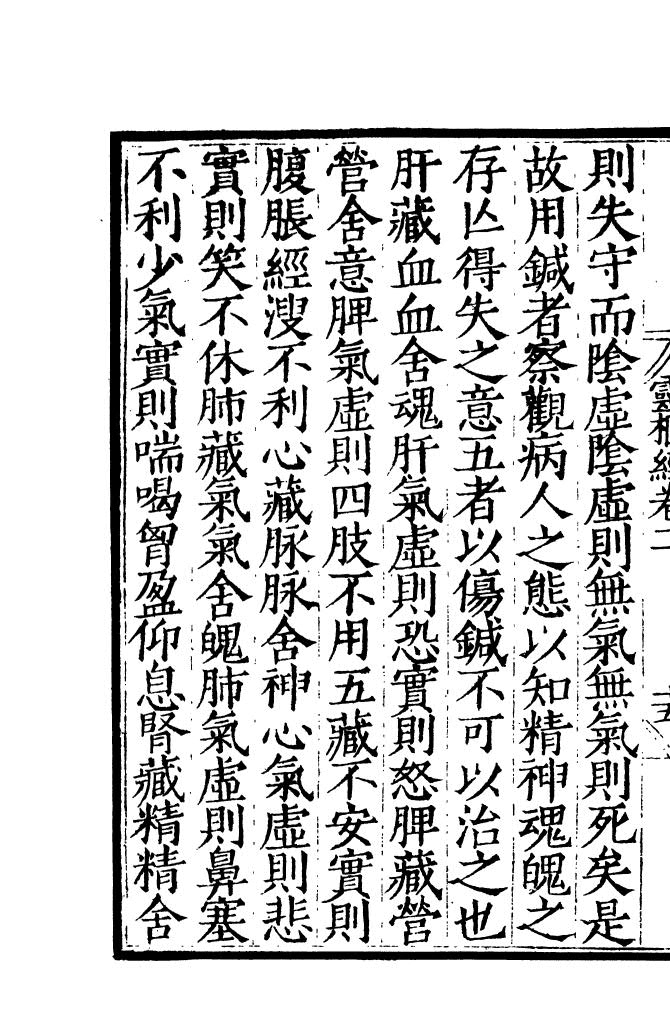 靈樞經卷二
十五
則失守而陰虛陰虛則無氣無氣則死矣是
故用鍼者察觀病人之態以知精神魂魄之
存亾得失之意五者以傷鍼不可以治之也
肝藏血血舍魂肝氣虛則恐實則怒脾藏營
營舍意脾氣虛則四肢不用五藏不安實則
腹脹經溲不利心藏脉脉舍神心氣虛則悲
實則笑不休肺藏氣氣舍魄肺氣虛則鼻塞
不利少氣實則喘喝胷盈仰息腎藏精精舍